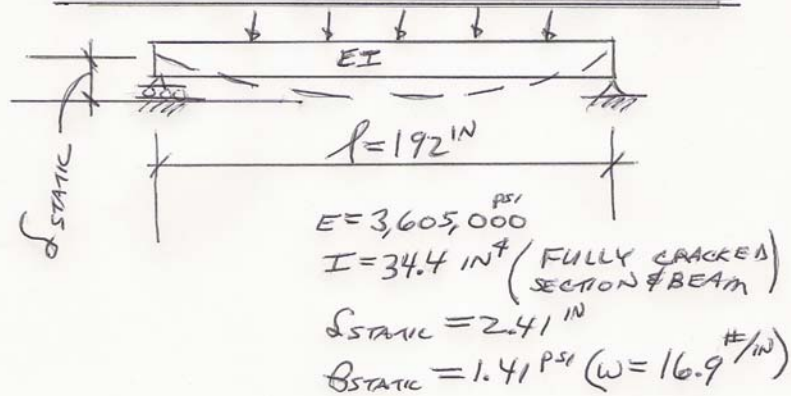 EI
l = 192 IN
δ STATIC
E = 3,605,000 PSI
I = 34.4 IN⁴ (FULLY CRACKED
SECTION & BEAM)
δSTATIC = 2.41 IN
βSTATIC = 1.41 PSI (ω = 16.9 #/IN)